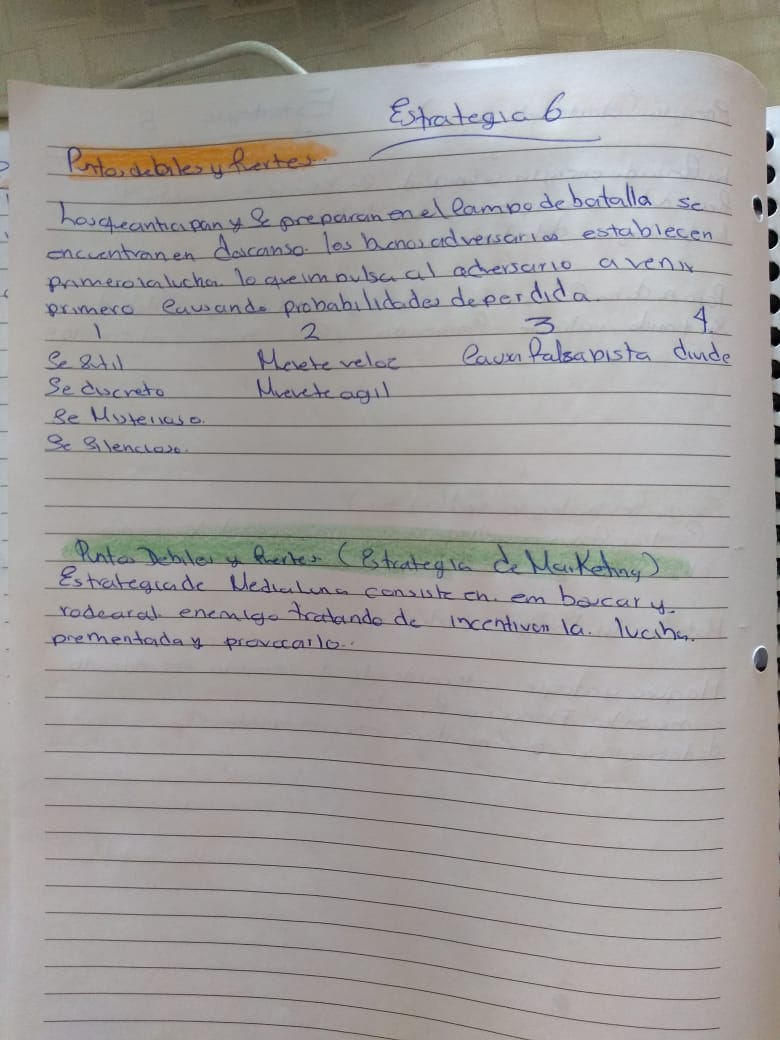 Estrategia 6
Puntos debiles y fuertes..
Los que anticipan y se preparan en el campo de batalla se
encuentran en descanso. los buenos adversarios establecen
primero la lucha. lo que impulsa al adversario a venir
primero causando probabilidades de perdida.
1 2 3 4.
Se sutil Muevete veloz Causa falsa pista divide
Se discreto Muevete agil
Se Misterioso.
Se Silencioso.
Puntos Debiles y fuertes. (Estrategia de Marketing)
Estrategia de Media luna consiste en. em boscar y
rodear al enemigo tratando de incentivar la. lucha.
y provocarlo..